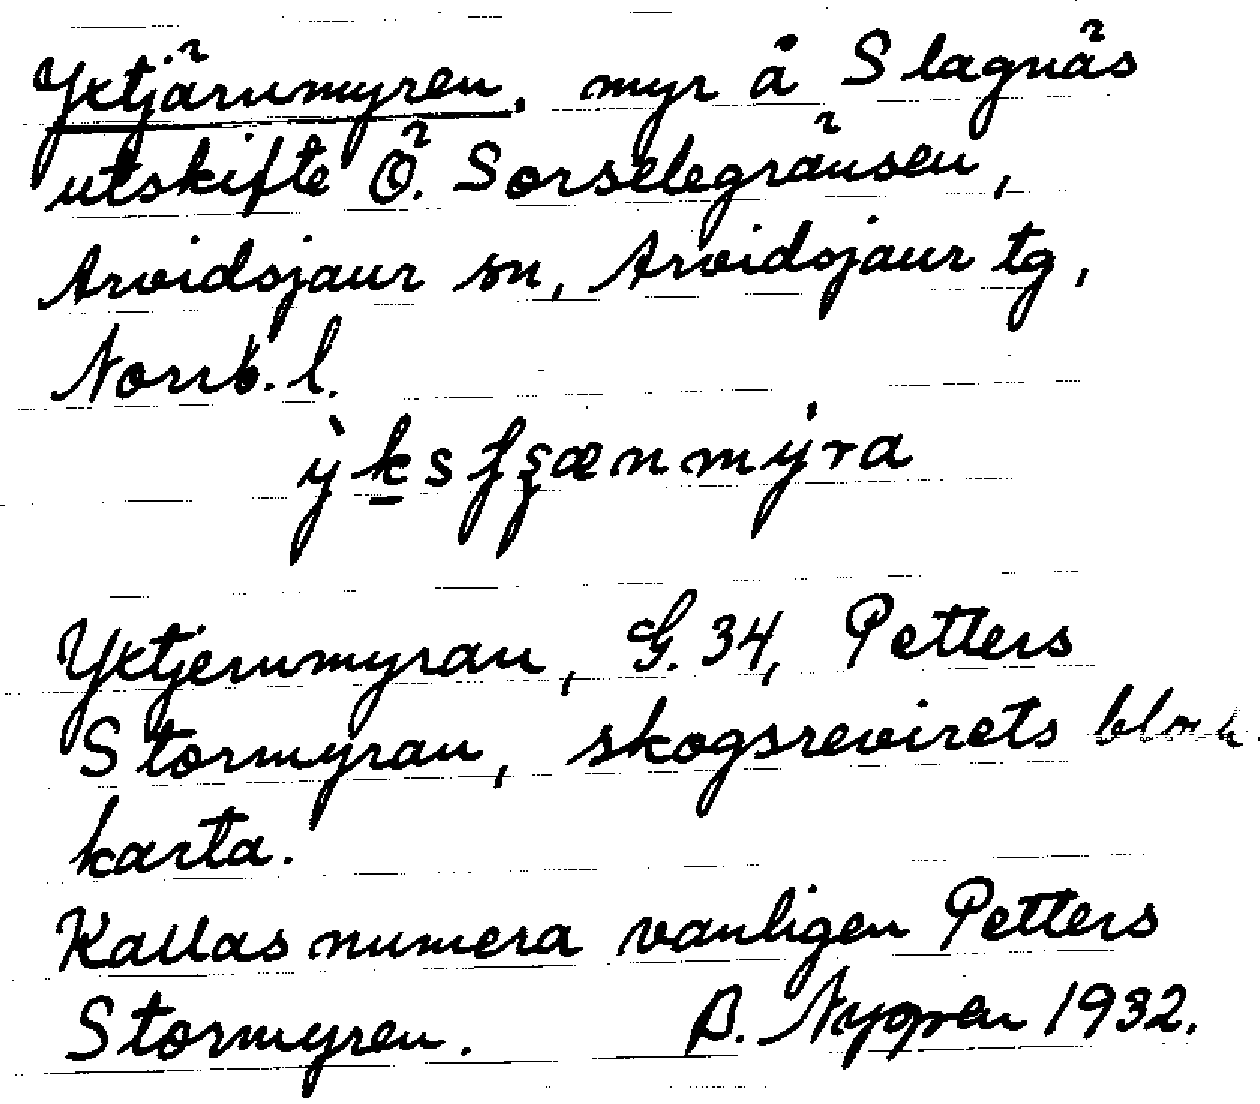 Yxtjärnmyren, myr å Slagnäs
utskifte Ö. Sorselegränsen,
Arvidsjaur sn, Arvidsjaur tg,
Norrb. l.
ỳksʃʒænmýra
Yxtjernmyran, G. 34, Petters
Stormyran, skogsrevirets block
karta.
Kallas numera vanligen Petters
Stormyren. B. Nyman 1932.